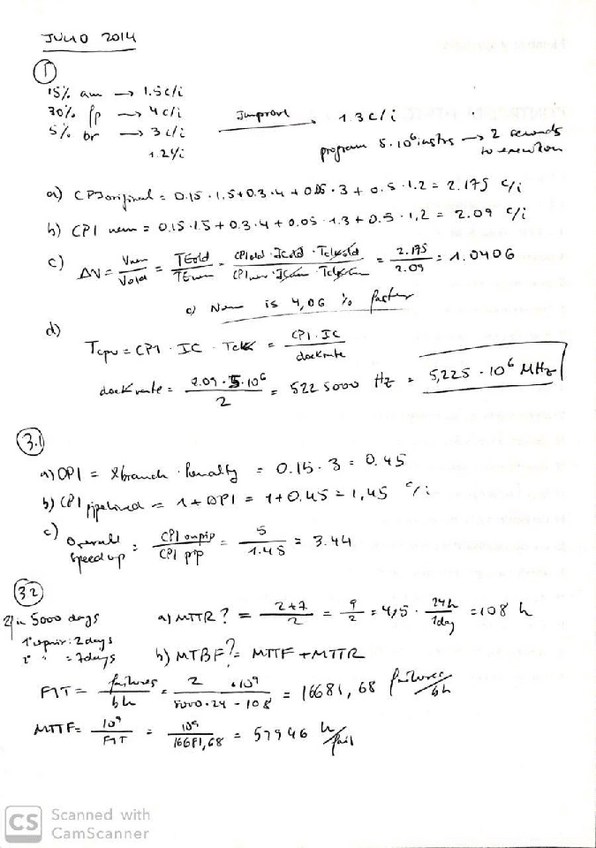 JULIO 2014
1
15% am → 1.5 c/i
30% fp → 4 c/i Improve → 1.3 c/i
5% br → 3 c/i
1.2 c/i program 5·10^6 instrs → 2 seconds to execution
a) CPI original = 0.15 · 1.5 + 0.3 · 4 + 0.05 · 3 + 0.5 · 1.2 = 2.175 c/i
b) CPI new = 0.15 · 1.5 + 0.3 · 4 + 0.05 · 1.3 + 0.5 · 1,2 = 2.09 c/i
c) ΔV = Vnew/Vold = TEold/TEnew = CPIold · ICold · Tclkold/CPInew · ICnew · Tclknew = 2.175/2.09 = 1.0406
c) New is 4,06 % faster
d)
Tcpu = CPI · IC · Tclk = CPI · IC/clockrate
clock rate = 2.09 · 5·10^6/2 = 5225000 Hz = 5,225 · 10^6 MHz
3.1
a) DPI = %branch · Penalty = 0.15 · 3 = 0.45
b) CPI pipelined = 1 + DPI = 1 + 0.45 = 1,45 c/i
c) Overall speedup = CPI unpip/CPI pip = 5/1.45 = 3.44
3.2
2f in 5000 days a) MTTR? = 2+7/2 = 9/2 = 4,5 · 24h/1day = 108 h
1º repair: 2 days
2º " = 7 days b) MTBF? = MTTF + MTTR
FIT = failures/bh = 2 · 10^9/5000·24 - 108 = 16681,68 failures/bh
MTTF = 10^9/FIT = 10^9/16681,68 = 59946 h/fail
CS Scanned with
CamScanner